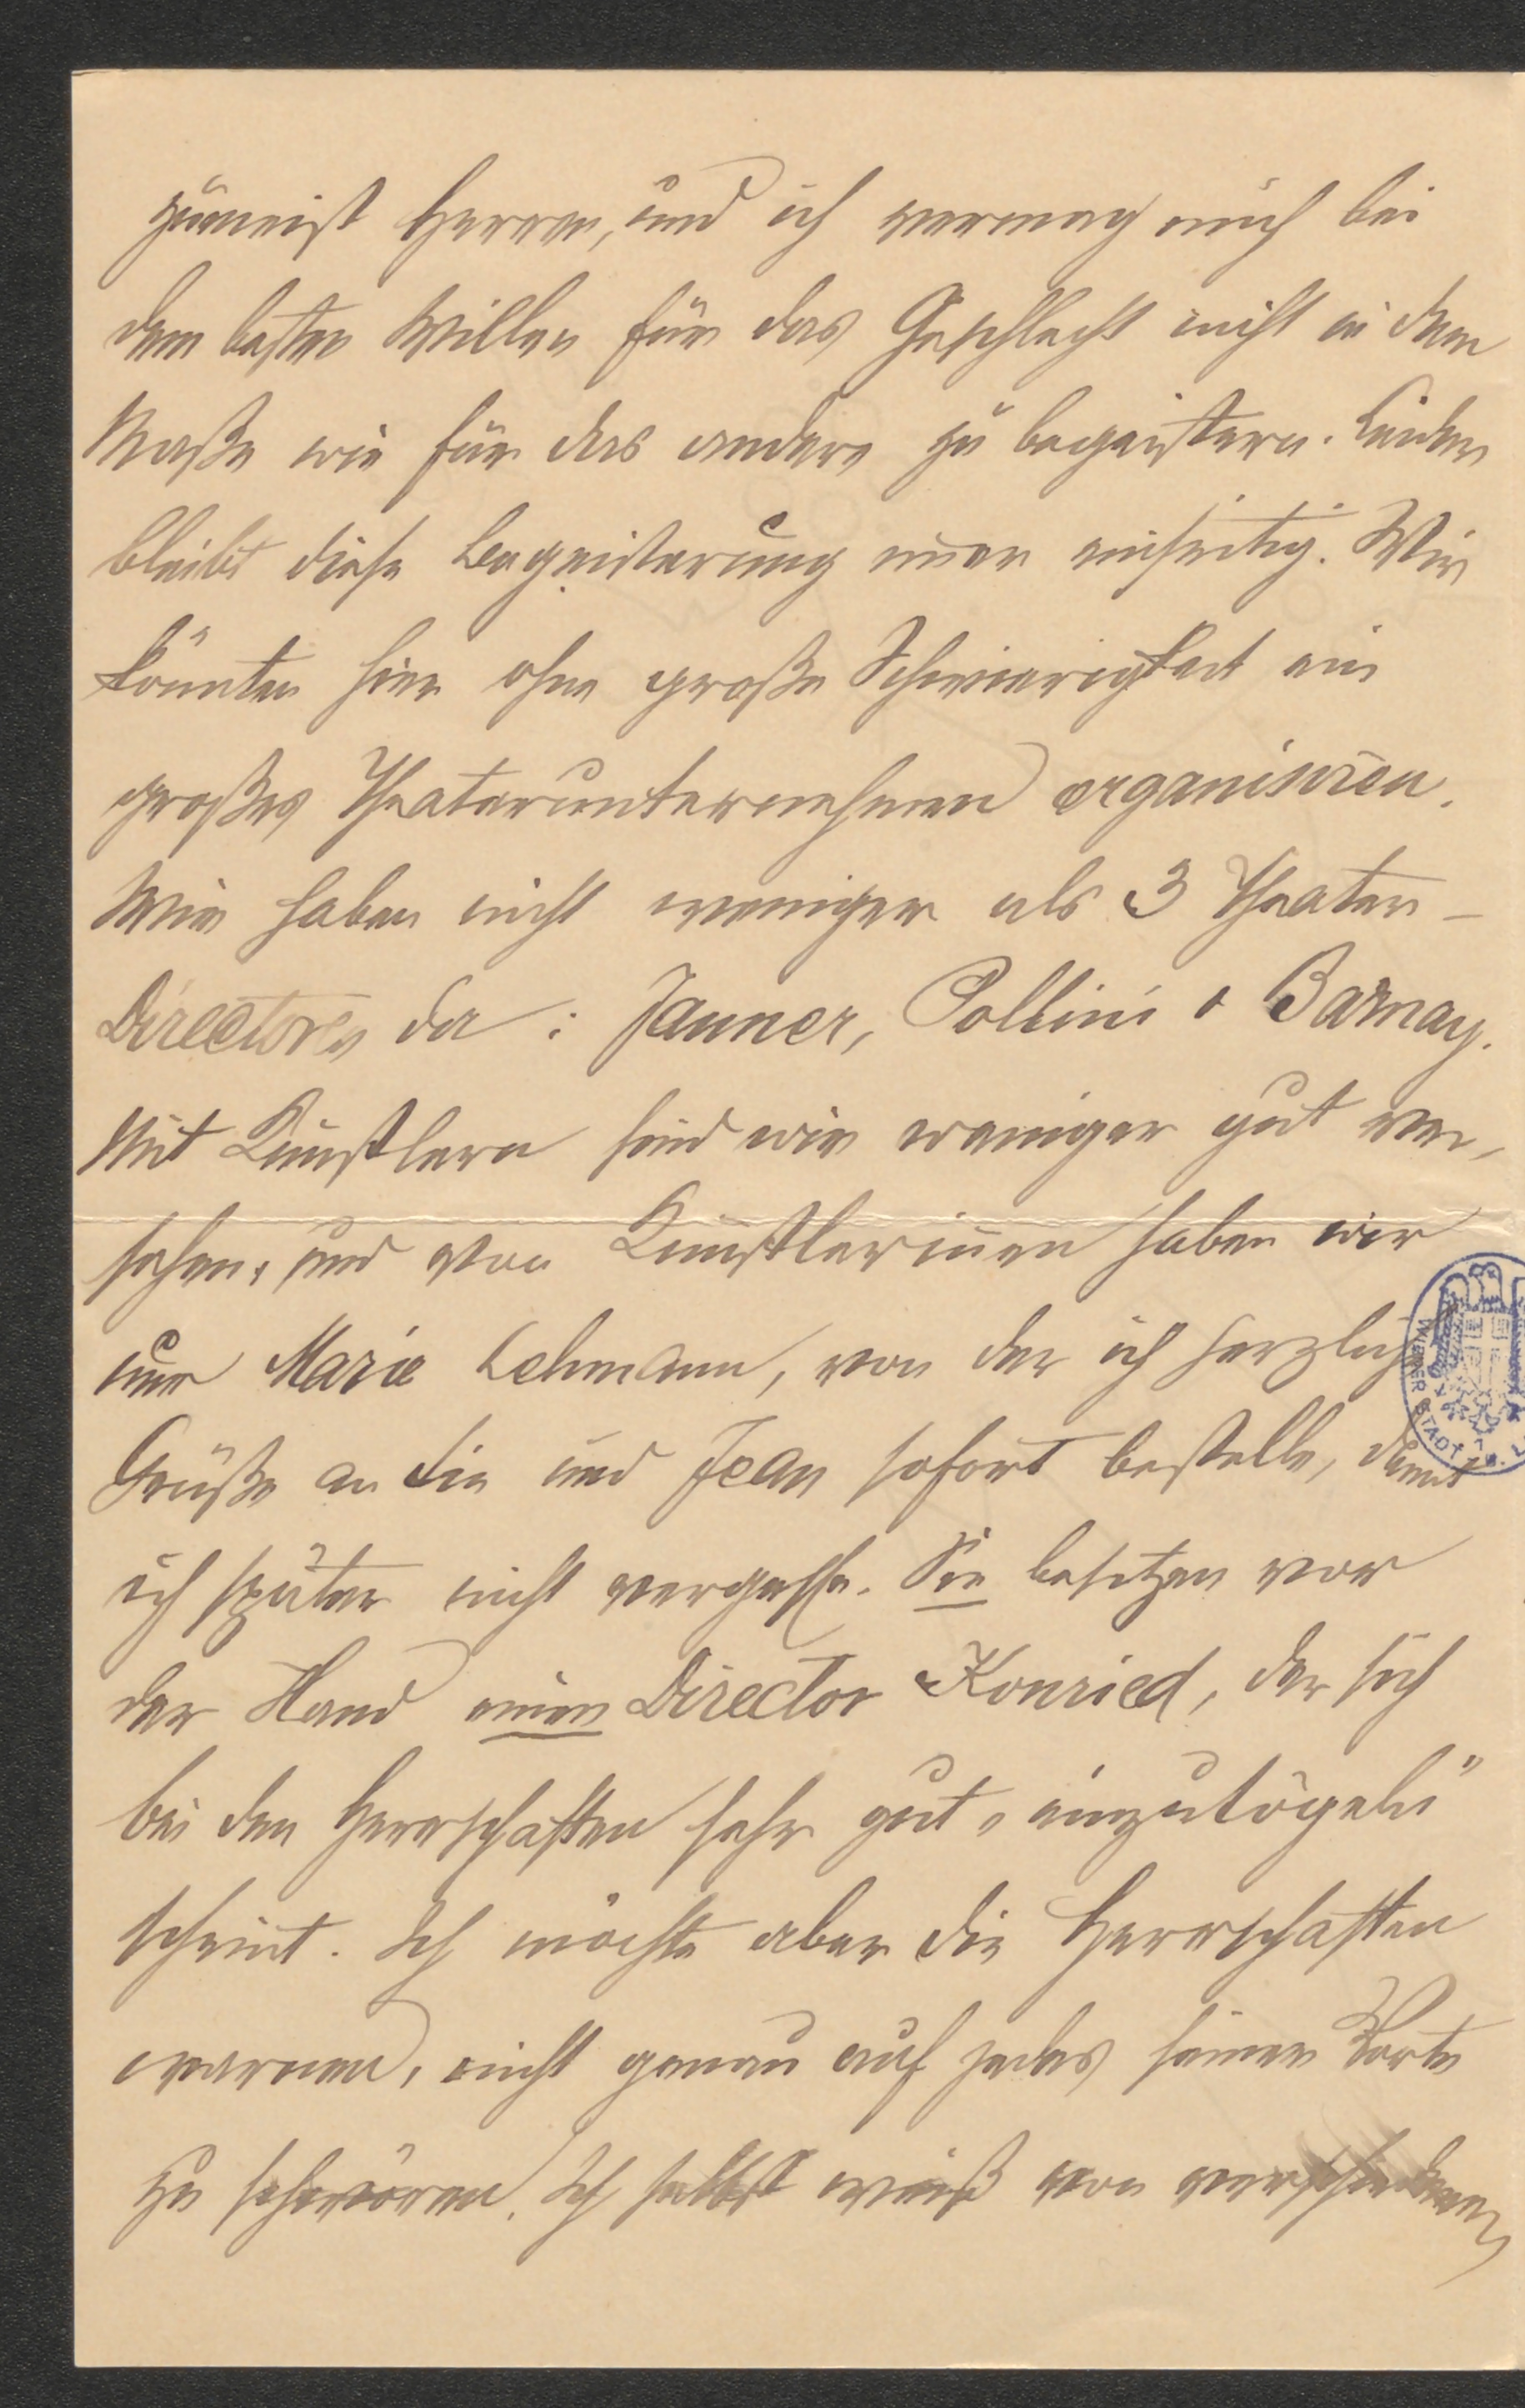 zumeist Herren, und ich vermag mich bei
dem besten Willen für das Geschlecht nicht in dem
Maße wie für das andere zu begeistern. Leider
bleibt diese Begeisterung immer einseitig. Wir
könnten hier ohne große Schwierigkeit ein
großes Theaterunternehmen organisiren.
Wir haben nicht weniger als 3 Theater-
Directores da: Jauner, Pollini & Barnay.
Mit Künstlern sind wir weniger gut ver-
sehen, und von Künstlerinnen haben wir
nur Marie Lehmann, von der ich herzliche
Grüße an Sie und Jean sofort bestelle, damit
ich später nicht vergesse. Sie besitzen vor
der Hand einen Director Konried, der sich
bei den Herrschaften sehr gut „einzutögeln"
scheint. Ich möchte aber die Herrschaften
warnen, nicht genau auf jedes seiner Worte
zu schwören. Ich selbst weiß von verschiedenen
WIENER STADT